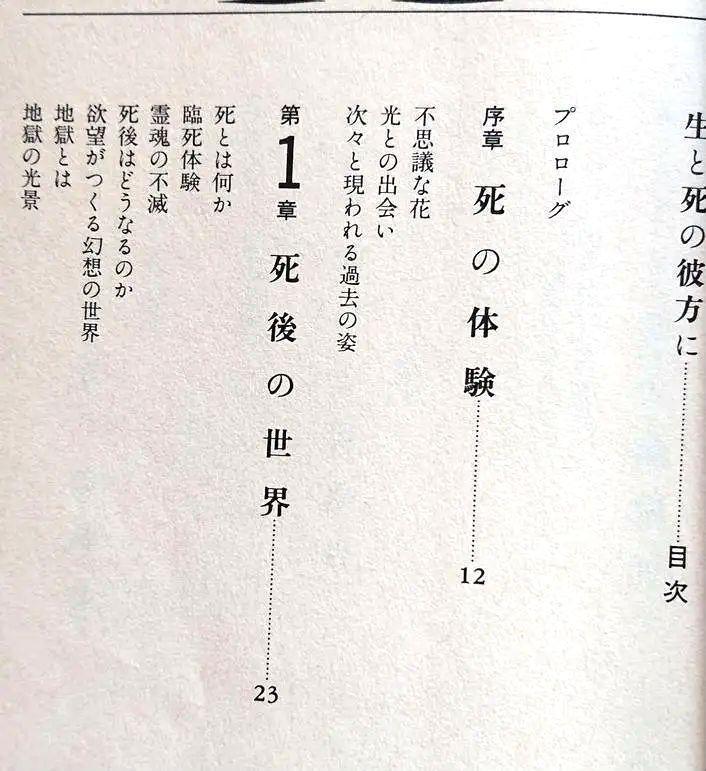 生と死の彼方に……………………目次
プロローグ
序章 死の体験……………………12
不思議な花
光との出会い
次々と現われる過去の姿
第1章 死後の世界……………………23
死とは何か
臨死体験
霊魂の不滅
死後はどうなるのか
欲望がつくる幻想の世界
地獄とは
地獄の光景